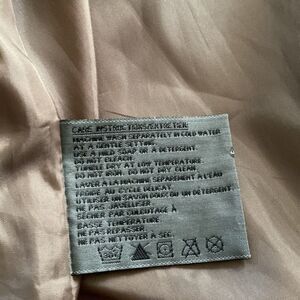 CARE INSTRUCTIONS/ENTRETIEN:
MACHINE WASH SEPARATELY IN COLD WATER
AT A GENTLE SETTING.
USE A MILD SOAP OR A DETERGENT.
DO NOT BLEACH.
TUMBLE DRY AT LOW TEMPERATURE.
DO NOT IRON. DO NOT DRY CLEAN.
LAVER A LA MACHINE SEPAREMENT A L'EAU
REGLEE AU CYCLE DELICAT.
UTILISER UN SAVON DOUX OU UN DETERGENT
NE PAS JAVELLISER.
SECHER PAR CULBUTAGE À
BASSE TEMPERATURE.
NE PAS REPASSER
NE PAS NETTOYER A SEC.
30°